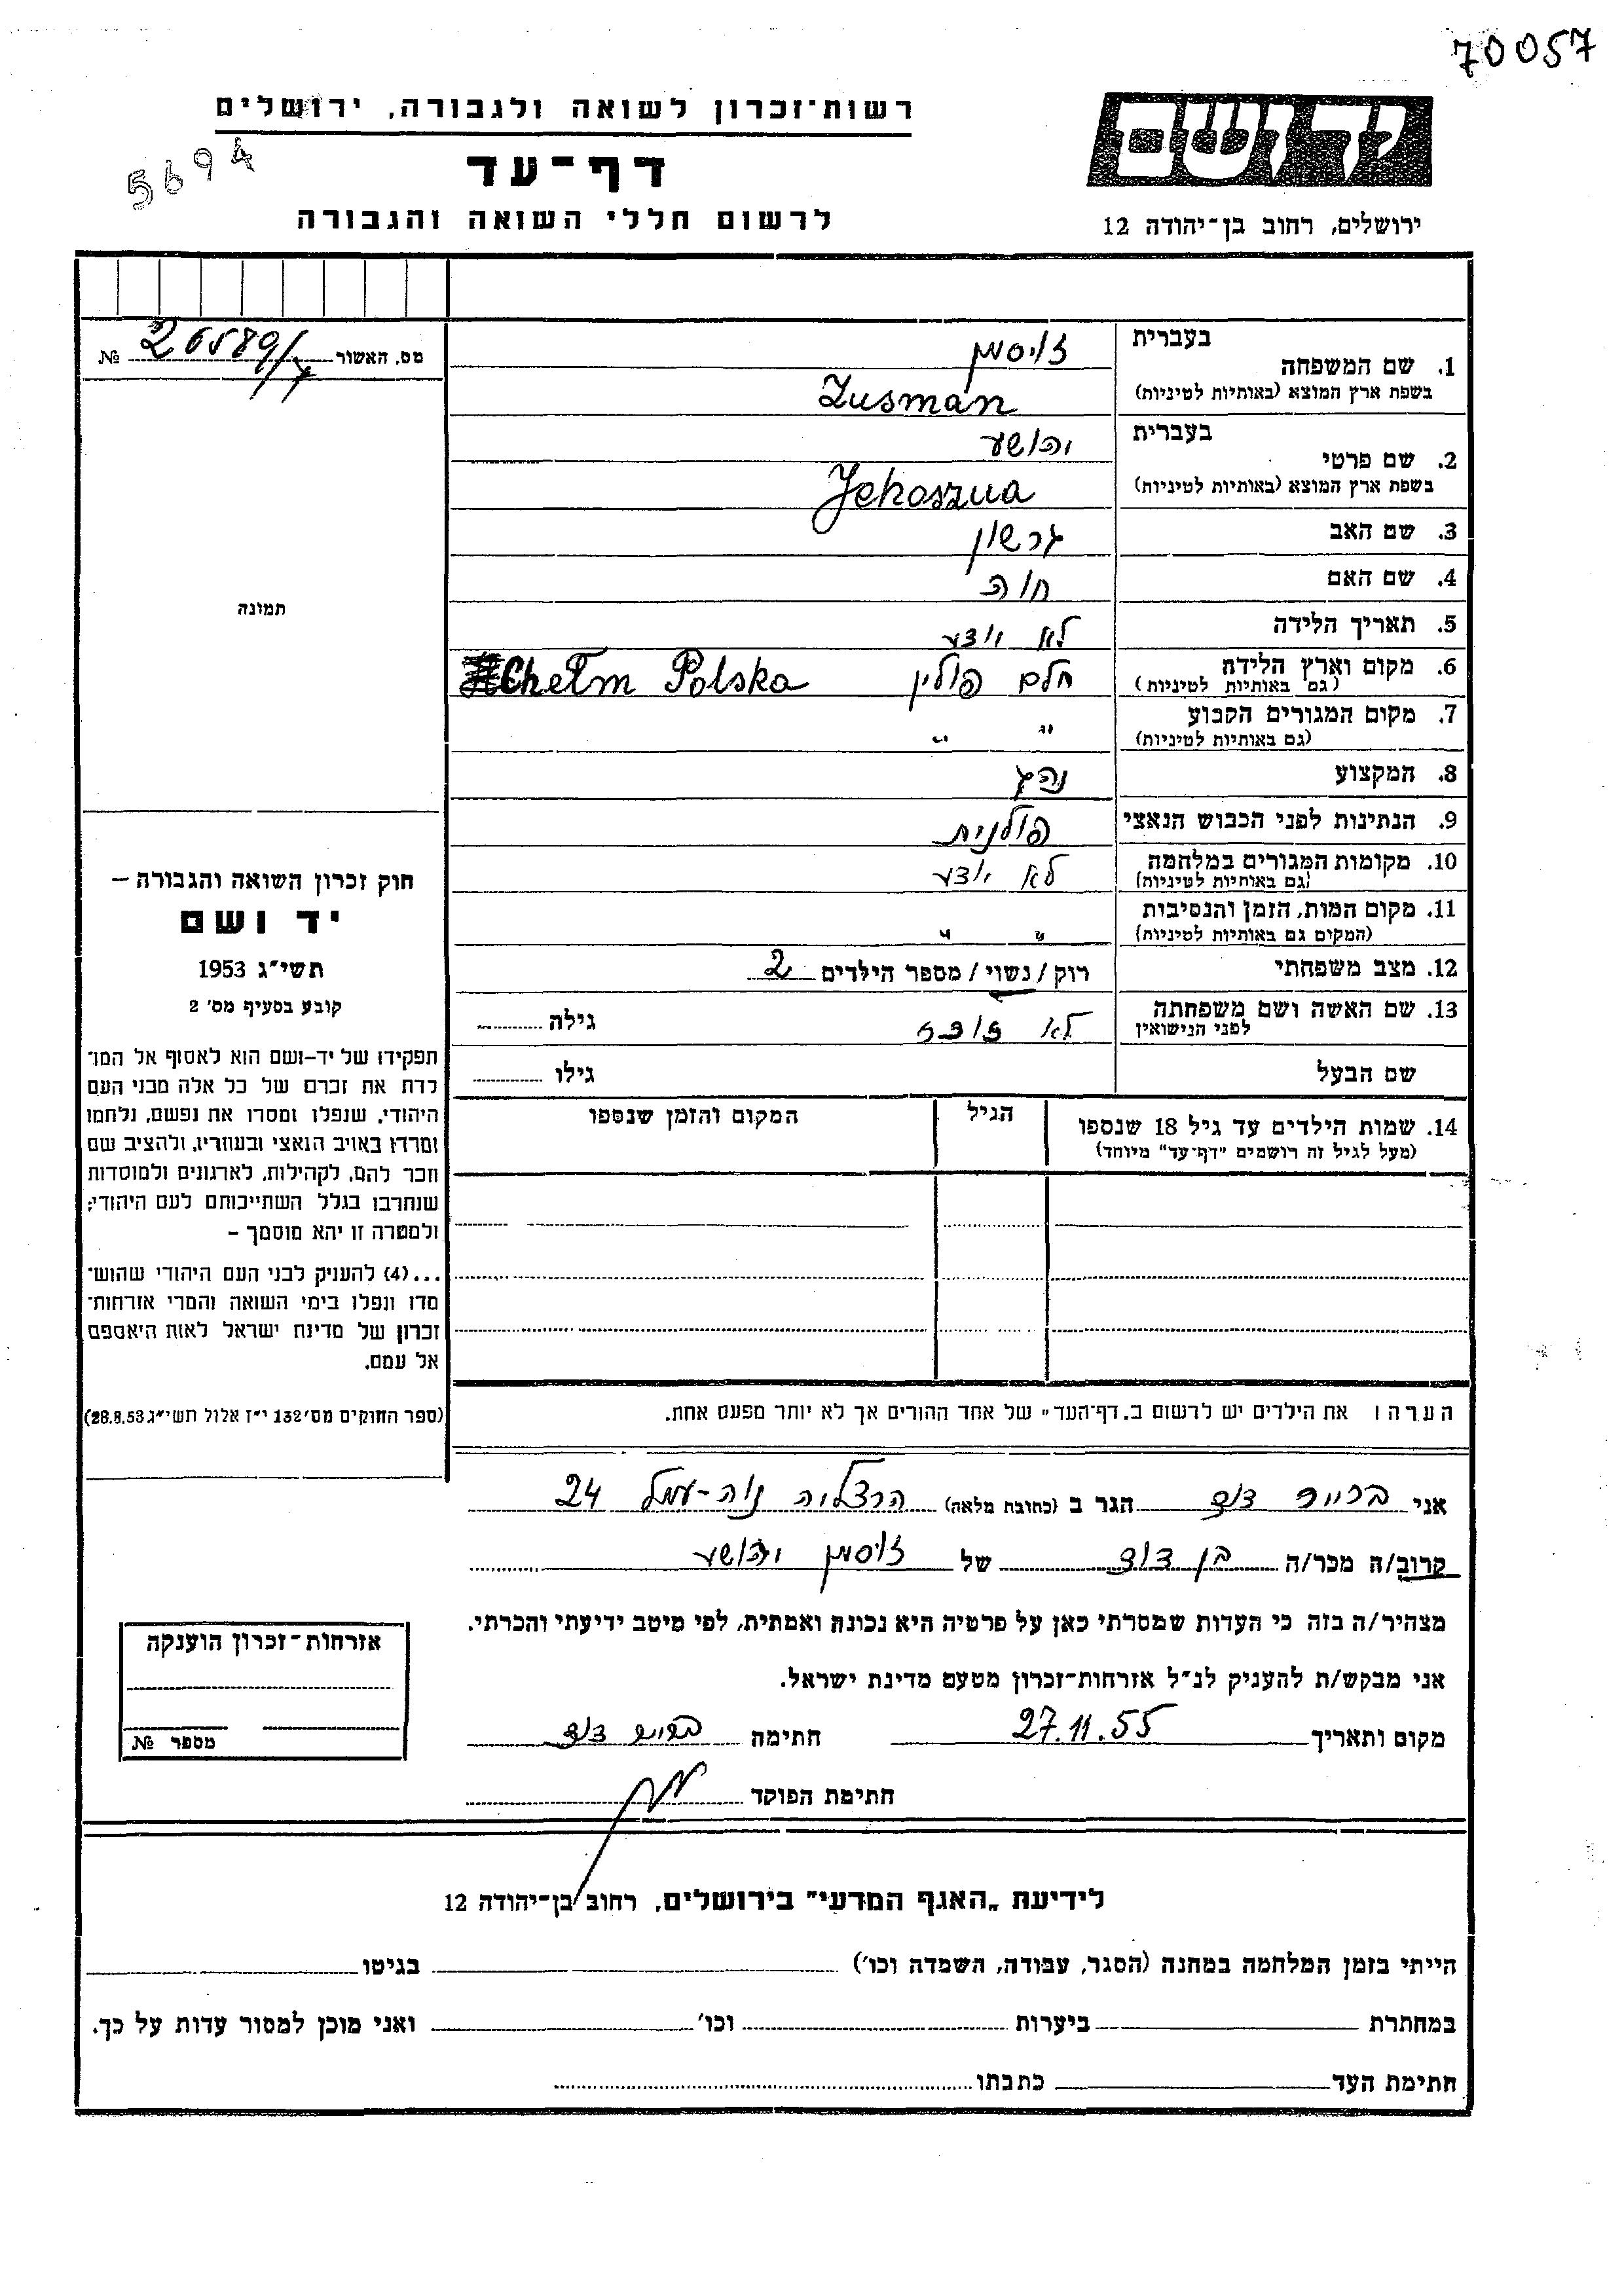 70057
רשות־זכרון לשואה ולגבורה, ירושלים
ידושם
5694
דף־עד
לרשום חללי השואה והגבורה
ירושלים, רחוב בן־יהודה 12
מס. האשור 26589/7 №
תמונה
חוק זכרון השואה והגבורה –
יד ושם
תשי״ג 1953
קובע בסעיף מס׳ 2
תפקידו של יד-ושם הוא לאסוף אל המו־
לדת את זכרם של כל אלה מבני העם
היהודי, שנפלו ומסרו את נפשם, נלחמו
ומרדו באויב הנאצי ובעוזריו, ולהציב שם
וזכר להם, לקהילות, לארגונים ולמוסדות
שנחרבו בגלל השתייכותם לעם היהודי;
ולמטרה זו יהא מוסמך –
...(4) להעניק לבני העם היהודי שהוש־
מדו ונפלו בימי השואה והמרי אזרחות־
זכרון של מדינת ישראל לאות היאספם
אל עמם.
(ספר החוקים מס׳ 132 י״ז אלול תשי״ג 28.8.53)
בעברית זוסמן
1. שם המשפחה
בשפת ארץ המוצא (באותיות לטיניות) Zusman
בעברית יהושע
2. שם פרטי
בשפת ארץ המוצא (באותיות לטיניות) Jehoszua
3. שם האב גרשון
4. שם האם חוה
5. תאריך הלידה לא יודע
6. מקום וארץ הלידה חלם פולין Chełm Polska
(גם באותיות לטיניות)
7. מקום המגורים הקבוע " "
(גם באותיות לטיניות)
8. המקצוע נהג
9. הנתינות לפני הכבוש הנאצי פולנית
10. מקומות המגורים במלחמה לא יודע
(גם באותיות לטיניות)
11. מקום המות, הזמן והנסיבות " "
(המקום גם באותיות לטיניות)
12. מצב משפחתי רוק / נשוי / מספר הילדים 2
13. שם האשה ושם משפחתה לא גילה
לפני הנישואין
שם הבעל גילו
14. שמות הילדים עד גיל 18 שנספו הגיל המקום והזמן שנספו
(מעל לגיל זה רושמים "דף־עד" מיוחד)
הערה ! את הילדים יש לרשום ב„דף־העד" של אחד ההורים אך לא יותר מפעם אחת.
אני דוד הגר ב (כתובת מלאה) הרצליה נוה-עמל 24
קרוב/ה מכר/ה בן דוד של זוסמן יהושע
מצהיר/ה בזה כי העדות שמסרתי כאן על פרטיה היא נכונה ואמתית, לפי מיטב ידיעתי והכרתי.
אני מבקש/ת להעניק לנ״ל אזרחות־זכרון מטעם מדינת ישראל.
מקום ותאריך 27.11.55 חתימה דוד
חתימת הפוקד
אזרחות־זכרון הוענקה
מספר №
לידיעת „האגף המדעי" בירושלים, רחוב בן־יהודה 12
הייתי בזמן המלחמה במחנה (הסגר, עבודה, השמדה וכו׳) בגיטו
במחתרת ביערות וכו׳ ואני מוכן למסור עדות על כך.
חתימת העד כתבתו